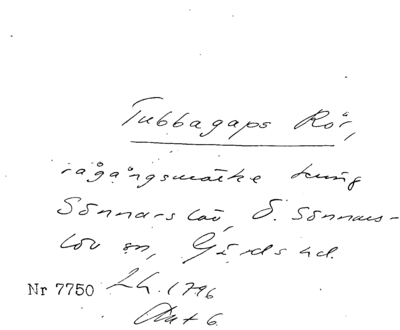 Tubbagaps Rör,
rågångsmärke kring
Sönnarslöv, Ö. Sönnars-
löv sn, Gärds hd.
Nr 7750 LH. 1796
Akt 6.